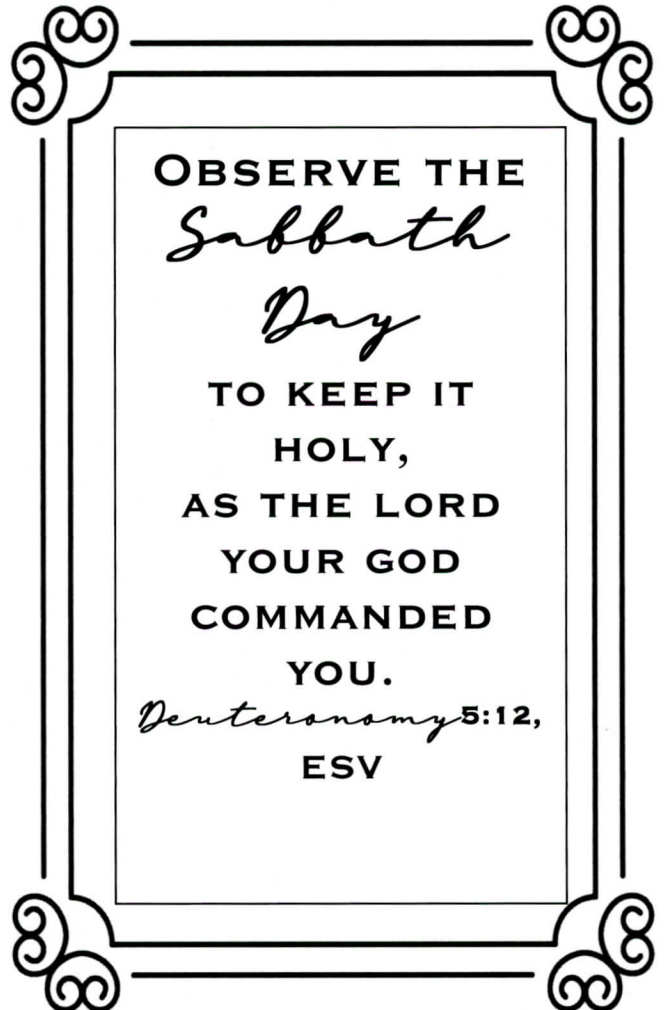 OBSERVE THE
Sabbath
Day
TO KEEP IT
HOLY,
AS THE LORD
YOUR GOD
COMMANDED
YOU.
Deuteronomy 5:12,
ESV